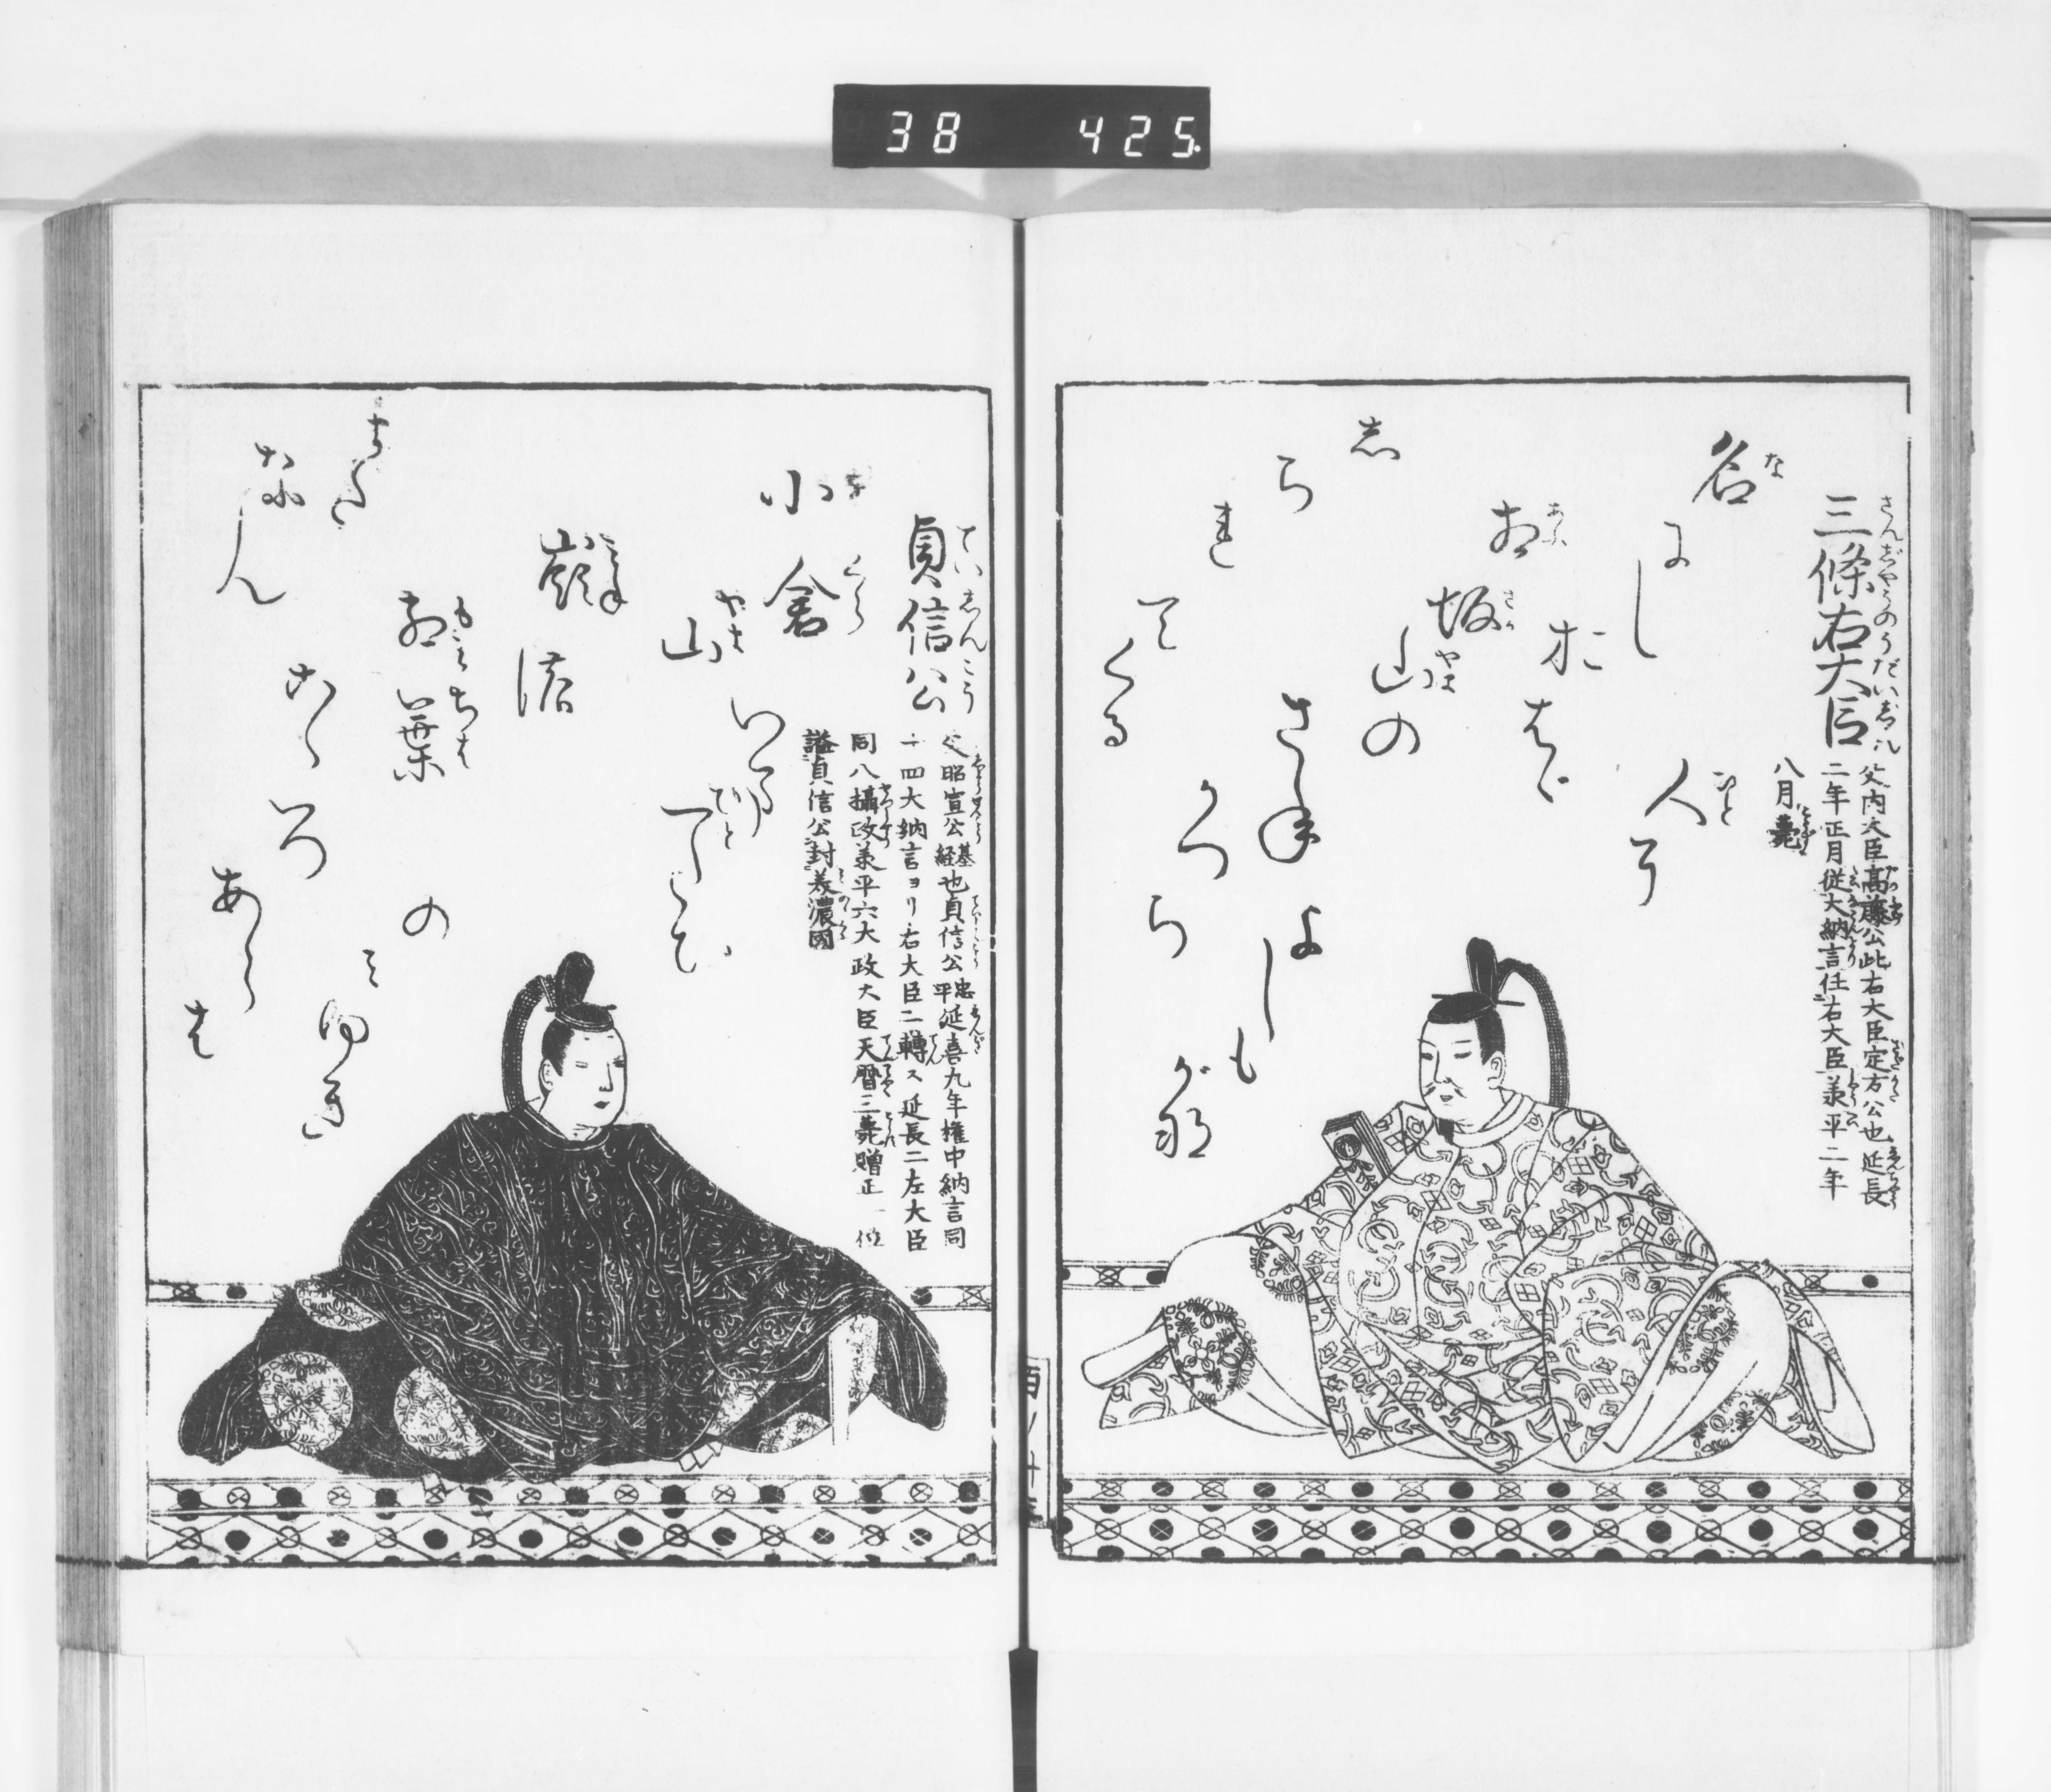 38 425
三條右大臣
さんじやうのうだいじん
父内大臣高藤公此右大臣定方公也延長
二年正月従大納言任右大臣羕平二年
八月薨
名にしおはゞ
相坂山の
さねかつら
人に
しられて
くるよしもがな
貞信公
ていしんこう
父昭宣公基経也貞信公忠平延喜九年権中納言同
十四大納言ヨリ右大臣ニ轉ス延長二左大臣
同八攝政羕平六大政大臣天暦三薨贈正一位
謚貞信公封美濃國
小倉山
嶺の
紅葉ゝ
こゝろあらは
いまひとたひの
みゆき
またなん